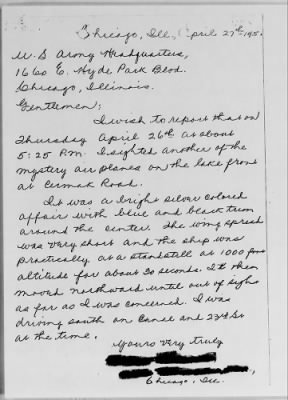 Chicago, Ill, April 27th, 195
U. S Army Headquarters,
1660 E. Hyde Park Blvd.
Chicago, Illinois.
Gentlemen;
I wish to report that on
Thursday April 26th at about
5:25 P.M. I sighted another of the
mystery air planes on the lake front
at Cermak Road.
It was a bright silver colored
affair with blue and black trim
around the center. The wing spread
was very short and the ship was
practically at a standstill at 1000 foot
altitude for about 20 seconds. It then
moved northward until out of sight
as far as I was concerned. I was
driving south on Canal and 23rd St
at the time.
Yours very truly
Chicago, Ill.